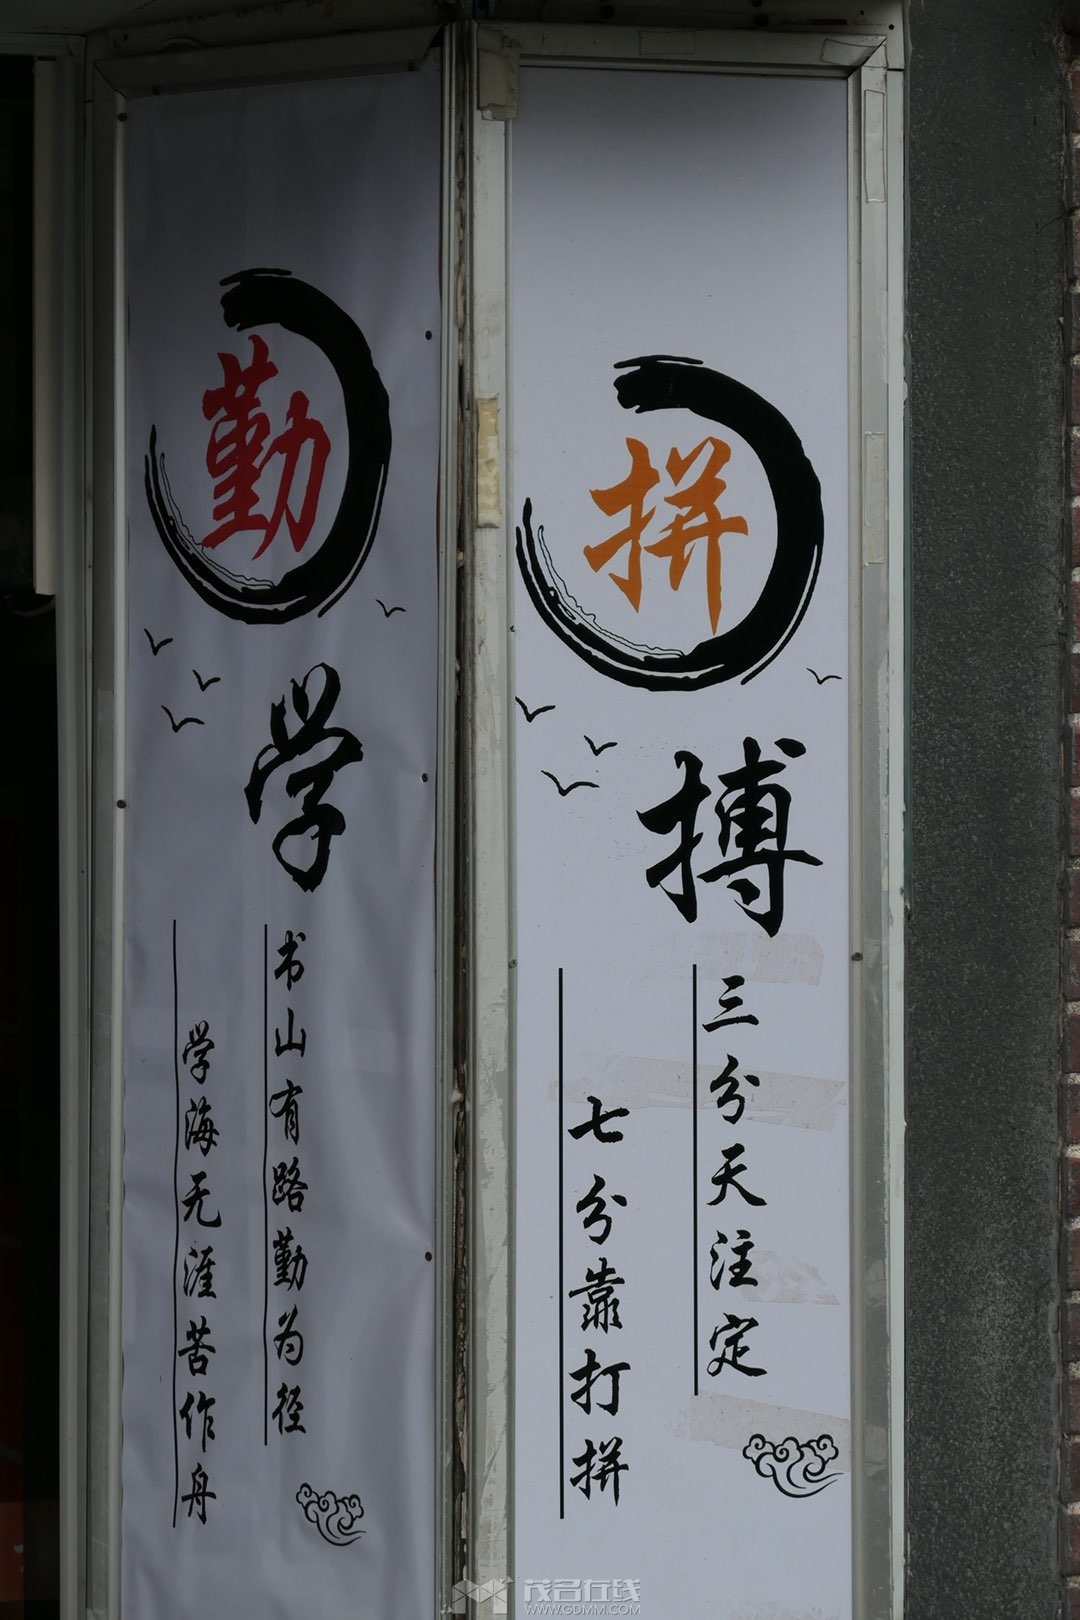 勤
学
书山有路勤为径
学海无涯苦作舟
拼
搏
三分天注定
七分靠打拼
茂名在线
WWW.GDMM.COM